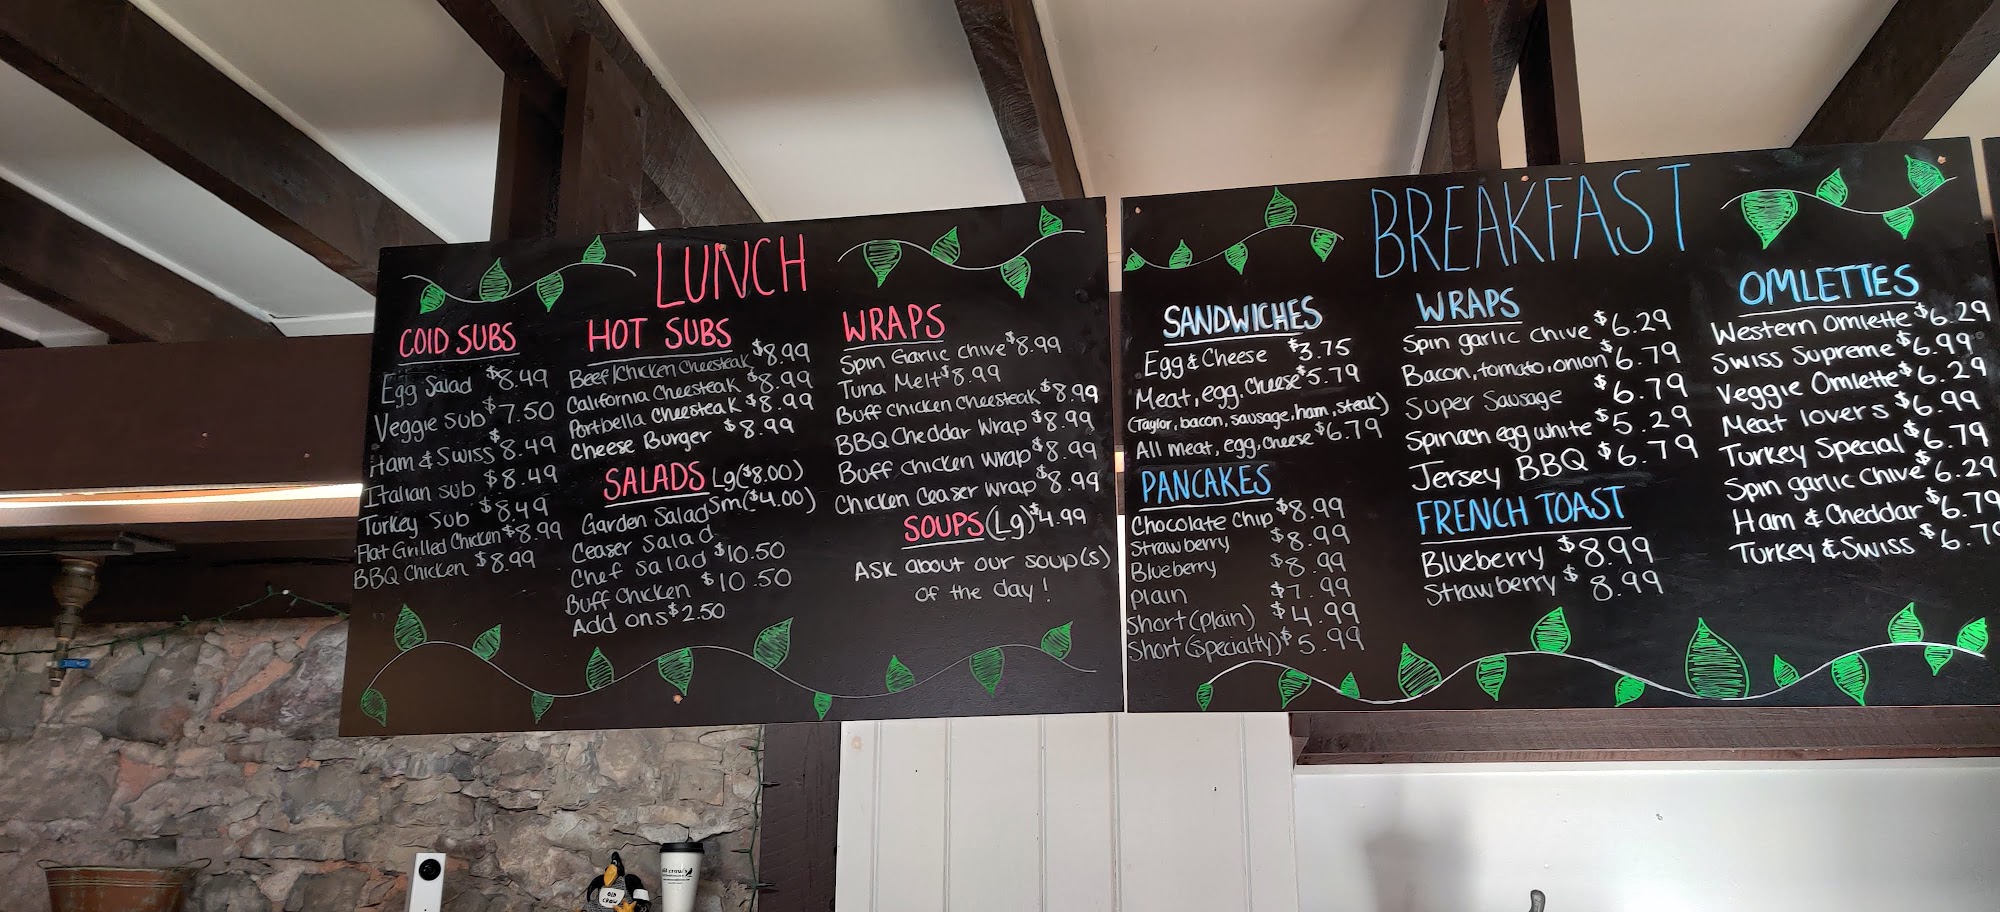 LUNCH
COLD SUBS
Egg Salad $8.49
Veggie Sub $7.50
Ham & Swiss $8.49
Italian Sub $8.49
Turkey Sub $8.49
Flat Grilled Chicken $8.99
BBQ Chicken $8.99
HOT SUBS
Beef/Chicken Cheesteak $8.99
California Cheesteak $8.99
Portbella Cheesteak $8.99
Cheese Burger $8.99
SALADS Lg($8.00)
Sm($4.00)
Garden Salad
Ceaser Salad
Chef Salad $10.50
Buff Chicken $10.50
Add ons $2.50
WRAPS
Spin Garlic Chive $8.99
Tuna Melt $8.99
Buff Chicken Cheesteak $8.99
BBQ Cheddar Wrap $8.99
Buff Chicken Wrap $8.99
Chicken Ceaser Wrap $8.99
SOUPS (Lg) $4.99
Ask about our soup(s)
of the day!
BREAKFAST
SANDWICHES
Egg & Cheese $3.75
Meat, egg, cheese $5.79
(Taylor, bacon, sausage, ham, steak)
All meat, egg, cheese $6.79
PANCAKES
Chocolate Chip $8.99
Strawberry $8.99
Blueberry $8.99
Plain $7.99
Short (plain) $4.99
Short (Specialty) $5.99
WRAPS
Spin garlic chive $6.29
Bacon, tomato, onion $6.79
Super Sausage $6.79
Spinach egg white $5.29
Jersey BBQ $6.79
FRENCH TOAST
Blueberry $8.99
Strawberry $8.99
OMLETTES
Western Omlette $6.29
Swiss Supreme $6.99
Veggie Omlette $6.29
Meat lovers $6.99
Turkey Special $6.79
Spin garlic Chive $6.29
Ham & Cheddar $6.79
Turkey & Swiss $6.79
OLD
CROW